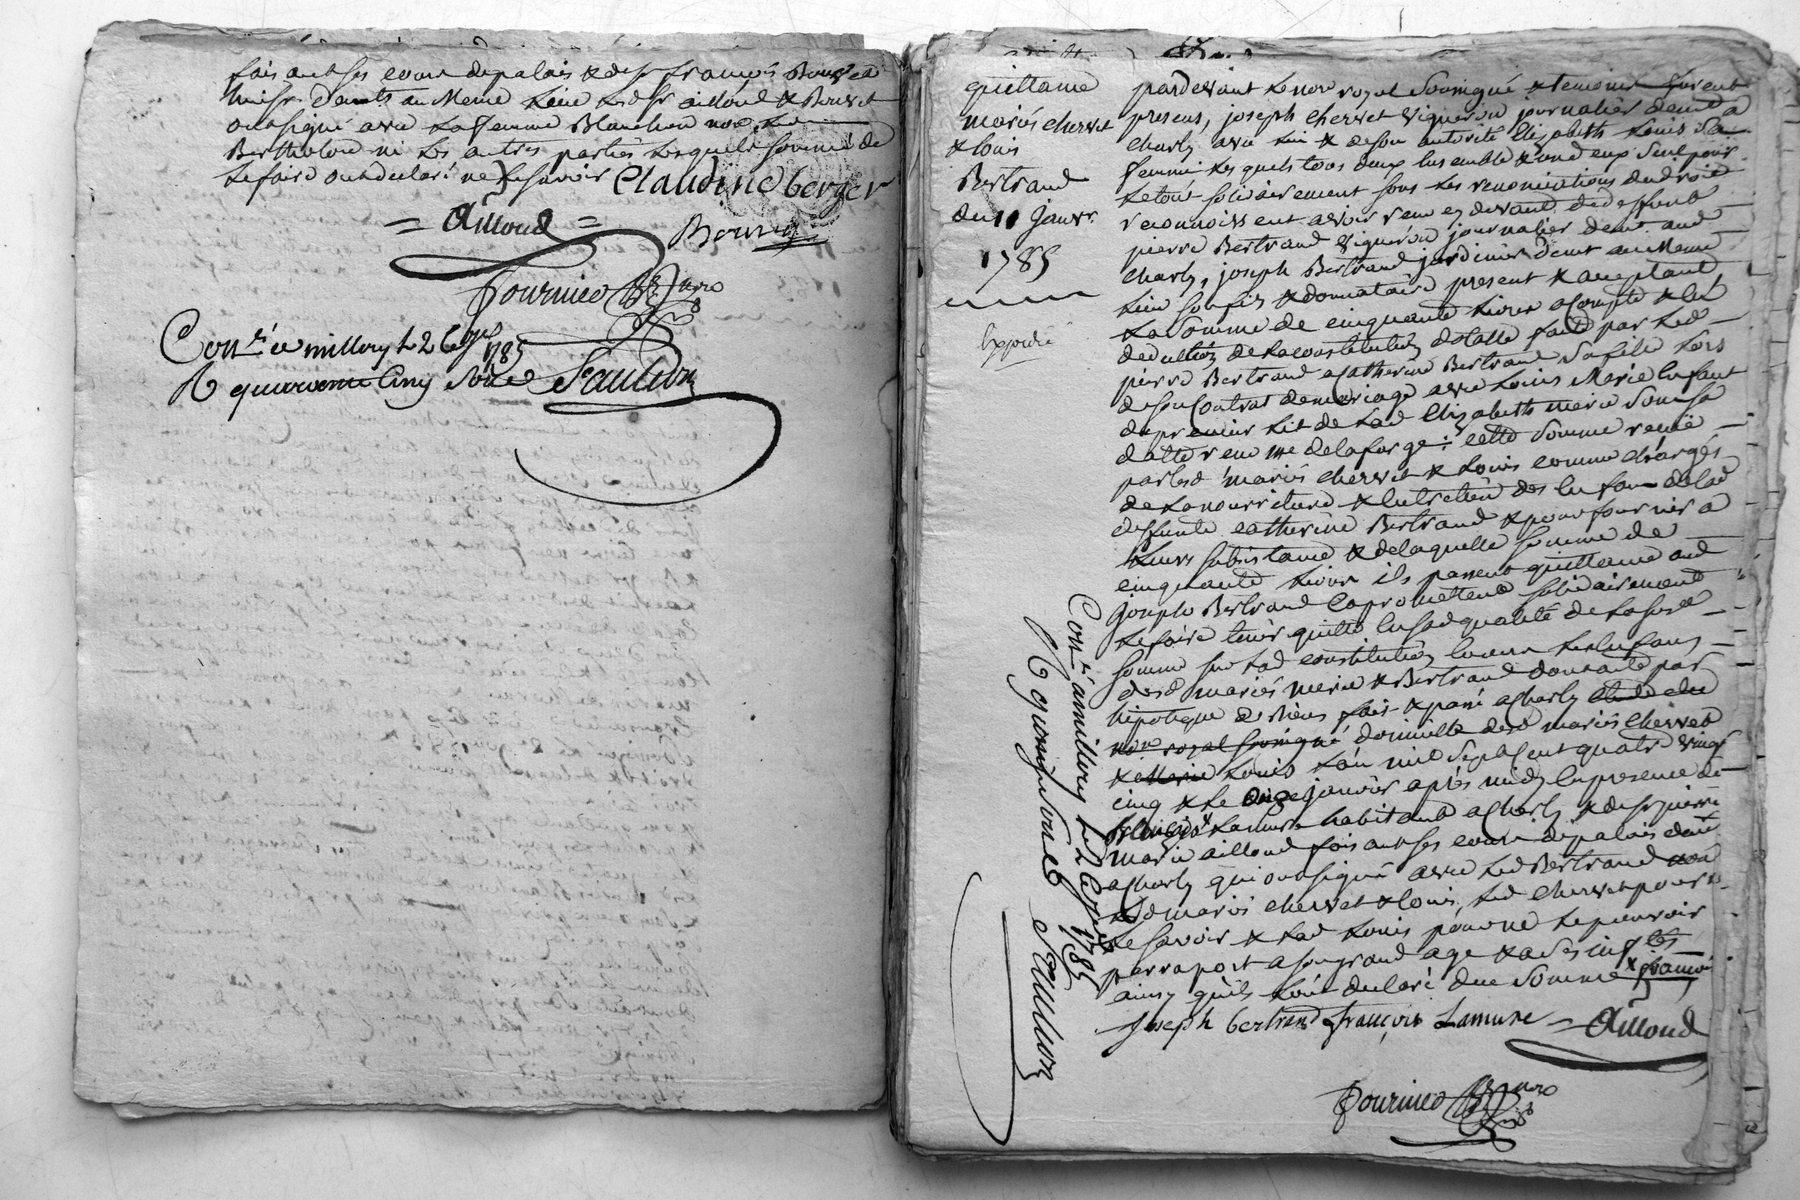 fois aux ses cour de palais & de sr françois Bouvet a
huissr. dants au meme lieu led sr ailloud & Bouvet
ont signé avec la femme Blanchon non led
Bertholon ni les autres parties lesquels sommé de
le faire ont declaré ne le savoir Claudine berger
= Ailloud =
Bouvet
Fournier nre
Conlé a millery le 2 1785
R quarante cinq sols Saulion
quittance
mariés chervet
& Louis
Bertrand
du 11 Janvr.
1785
Expedié
pardevant le nore royal soussigné & temoins furent
presens, joseph chervet vigneron journalier demt a
charly avec lui & de son autorité Elizabeth Louis sa
femme lesquels tous deux ensemble & un deux seul pour
le tout solidairement sous les renonciations de droit
reconnoissent avoir reçu cy devant de deffunt
pierre Bertrand vigneron journalier demt aud
charly, joseph Bertrand jardinier demt au meme
lieu son fils & donnataire present & acceptant
la somme de cinquante livres a compte & en
deduction de la constitution dotalle faite par led
pierre Bertrand a Catherine Bertrand sa fille lors
de son Contrat de mariage avec Louis Marie enfant
du premier lit de lad Elizabeth
datte reçu me delaforge: cette somme reçue
par lesd mariés chervet & Louis comme chargés
de la nourriture & entretien des enfans de lad
deffunte catherine Bertrand & pour fournir a
leurs subsistance & de laquelle somme de
cinquante livres ils passent quittance aud
joseph Bertrand & promettent solidairement
le faire tenir quitte en sad qualité de lasusd
somme sur lad constitution envers les enfans
desd mariés merie & Bertrand
hipoteque de biens fait & passé a Charly
nore royal soussigné domicille desd mariés chervet
& Louis L'an mil sept cent quatre vingt
cinq & le onze janvier après midy en presence de
Lamure habitant a Charly & de sr pierre
marie aillioud fois aux ses cour de palais demt
a Charly qui ont signé avec led Bertrand non
lesd mariés chervet & Louis, led chervet pour ne
le savoir & lad Louis pour ne le pouvoir
par raport a son grand age & a ses infirmités
ainsy qu'ils l'ont declaré due somme x françois
Joseph bertrand françois Lamure = Ailloud
Fournier nre
Conlé a millery le 2 1785
R quinze sols Saulion